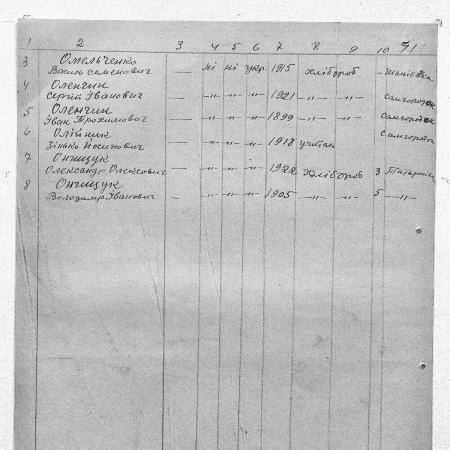 1 2 3 4 5 6 7 8 9 10 11
3 Омельченко
Василь Семенович — ні ні укр 1915 хлібороб
4 Оленчин
Сергій Іванович — „ „ „ 1921 —„— —„— Самгородок
5 Оленчин
Іван Трохимович — „ „ „ 1899 —„— —„— Самгородок
6 Олійник Самгородок
Зінько Йосипович — „ „ „ 1918
7 Онищук
Олександр Олексович — „ „ „ 1922 Хлібороб 3
8 Онищук
Володимир Іванович — „ „ „ 1905 —„— —„— 5 —„—